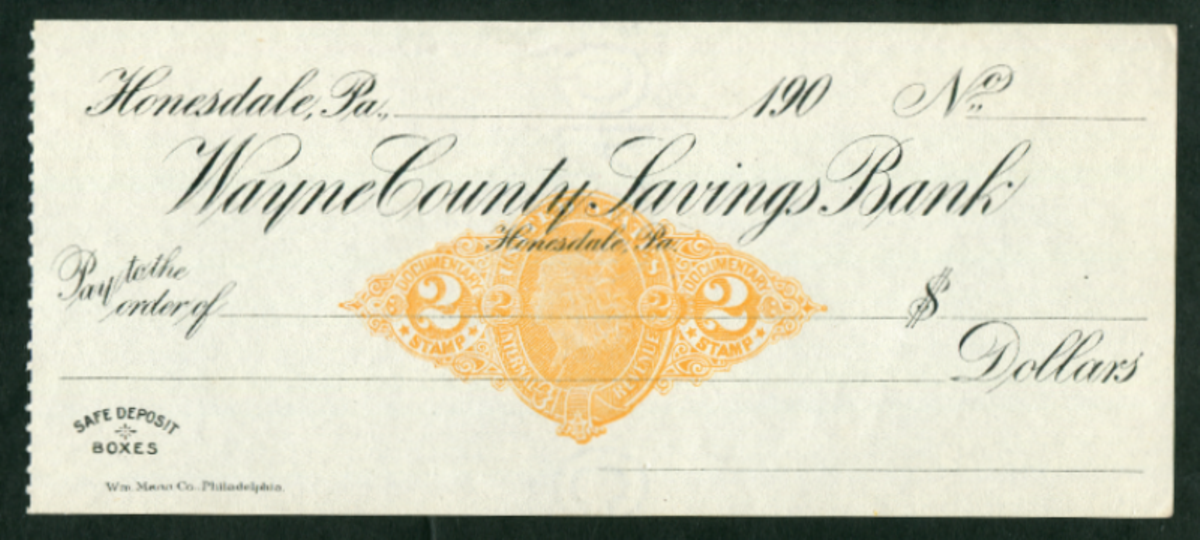 Honesdale, Pa., 190 No.
Wayne County Savings Bank
Honesdale, Pa.
Pay to the order of $
DOCUMENTARY 2 STAMP
2 2
DOCUMENTARY 2 STAMP
INTERNAL REVENUE
Dollars
SAFE DEPOSIT
BOXES
Wm. Mann Co. Philadelphia.